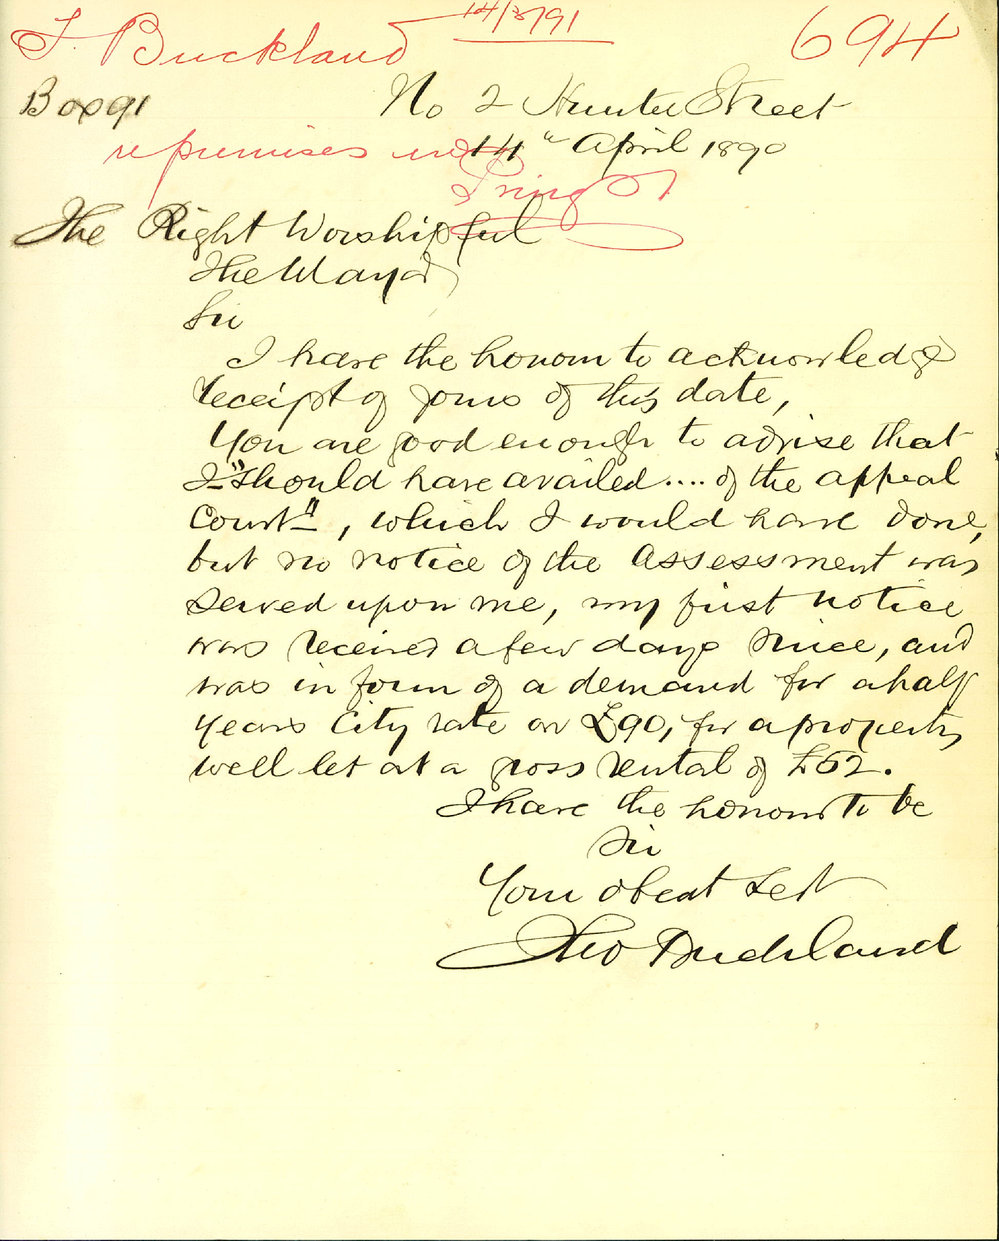 T. Buckland 14/3/91 694
Box 91 No 2 Hunter Street
re premises in 14" April 1890
Pring St
The Right Worshipful
The Mayor
Sir
I have the honour to acknowledge
receipt of yours of this date,
You are good enough to advise that
I "should have availed .... of the appeal
Court", which I would have done,
but no notice of the assessment was
served upon me, my first notice
was received a few days since, and
was in form of a demand for a half
years City rate on £90, for a property
well let at a gross rental of £52.
I have the honour to be
Sir
Your obedt Sevt
Theo Buckland